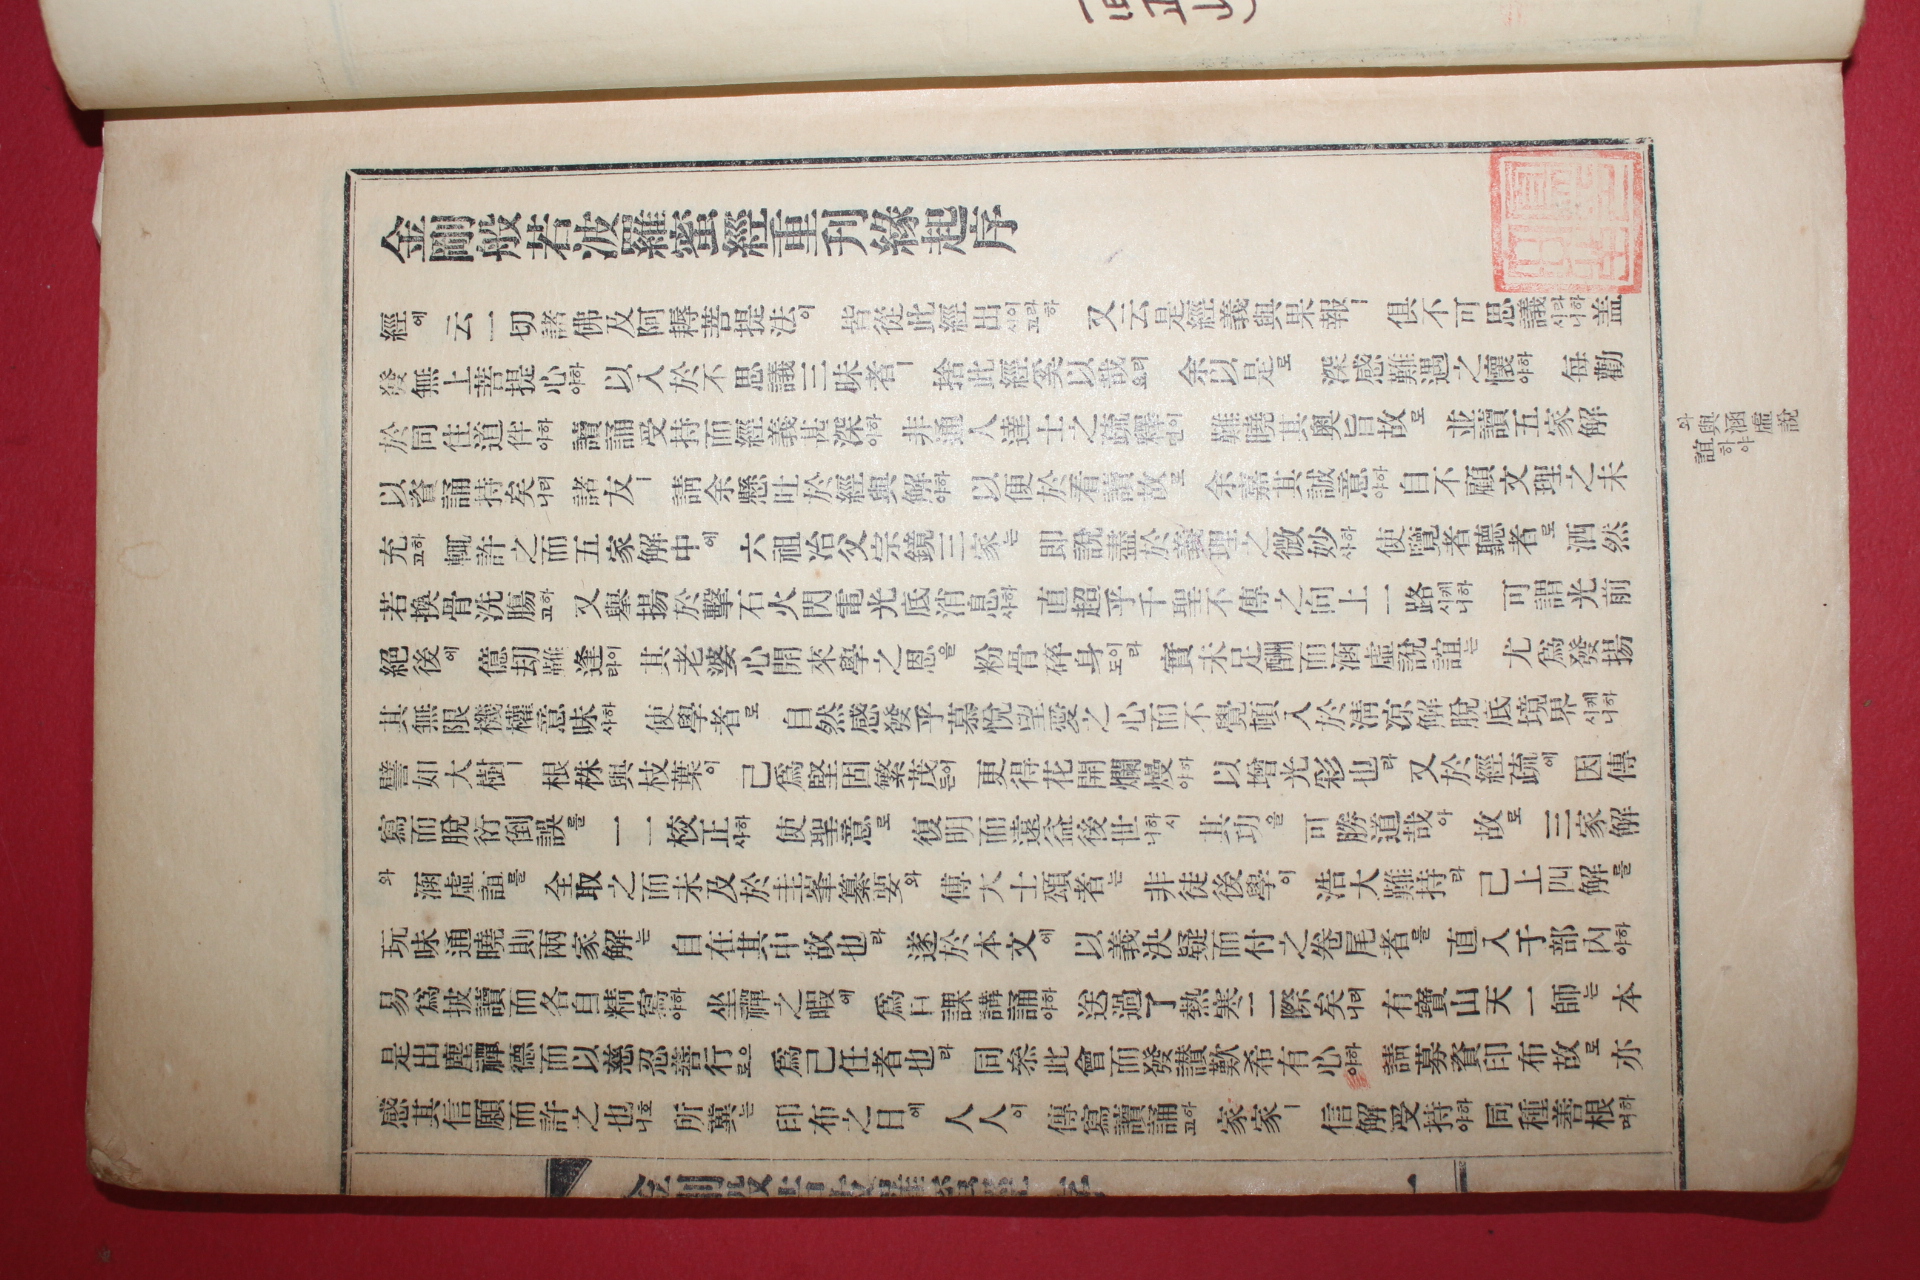 金剛般若波羅蜜經重刊緣起序
經에 云一切諸佛及阿耨菩提法이 皆從此經出이라하시고 又云是經義與果報ㅣ 俱不可思議라하시니 盖
發無上菩提心하야 以入於不思議三昧者ㅣ 捨此經奚以哉리요 余以是로 深感難遇之懷하야 每勸
於同住道伴하야 讀誦受持而經義甚深하야 非通人達士之疏釋이면 難曉其奧旨故로 並讀五家解
以資誦持矣러니 諸友ㅣ 請余懸吐於經與解하야 以便於看讀故로 余嘉其誠意하야 自不顧文理之未
充하고 輒許之而五家解中에 六祖冶父宗鏡三家는 即說盡於義理之微妙하사 使覽者聽者로 洒然
若換骨洗膓하고 又擧揚於擊石火閃電光底消息하사 直超乎千聖不傳之向上一路케하시니 可謂光前
絕後에 億劫難逢이라 其老婆心開來學之恩을 粉骨碎身이라도 實未足酬而涵虛說誼는 尤爲發揚
其無限機權意味하사 使學者로 自然感發乎慕悅望愛之心而不覺頓入於淸凉解脫底境界케하시니
譬如大樹ㅣ 根株與枝葉이 已爲堅固繁茂든이 更得花開爛熳하야 以增光彩也라 又於經疏에 因傳
寫而脫衍倒誤를 一一校正하사 使聖意로 復明而遠益後世하시니 其功을 可勝道哉아 故로 三家解
와 涵虛誼를 全取之而未及於圭峯纂要와 傅大士頌者는 非徒後學이 浩大難持라 已上四解를
玩味通曉則兩家解는 自在其中故也라 遂於本文에 以義決疑而付之卷尾者를 直入于部內하야
易爲披讀而各自精寫하야 坐禪之暇에 爲日課講誦하야 送過了熱寒二際矣러니 有寶山天一師는 本
是出塵禪德而以慈忍善行으로 爲己任者也라 同叅此會而發讃歎希有心하야 請募資印布故로 亦
感其信願而許之也호니 所冀는 印布之日에 人人이 傳寫讀誦하고 家家ㅣ 信解受持하야 同種善根하며
와 與涵虛說
誼하야